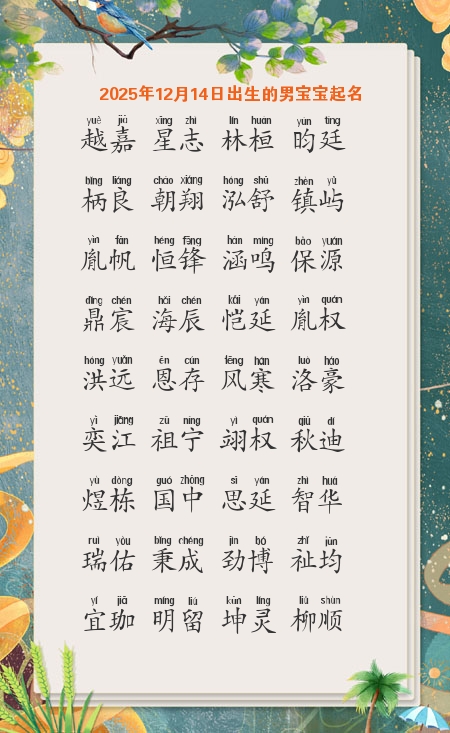 2025年12月14日出生的男宝宝起名
yuè jiā xīng zhì lín huán yún tíng
越嘉 星志 林桓 昀廷
bǐng liáng cháo xiáng hóng shū zhèn yǔ
柄良 朝翔 泓舒 镇屿
yìn fān héng fēng hán míng bǎo yuán
胤帆 恒锋 涵鸣 保源
dǐng chén hǎi chén kǎi yán yìn quán
鼎宸 海辰 恺延 胤权
hóng yuǎn ēn cún fēng hán luò háo
洪远 恩存 风寒 洛豪
yì jiāng zǔ níng yì quán qiū dí
奕江 祖宁 翊权 秋迪
yù dòng guó zhōng sī yán zhì huá
煜栋 国中 思延 智华
ruì yòu bǐng chéng jìn bó zhǐ jūn
瑞佑 秉成 劲博 祉均
yí jiā míng liú kūn líng liǔ shùn
宜珈 明留 坤灵 柳顺